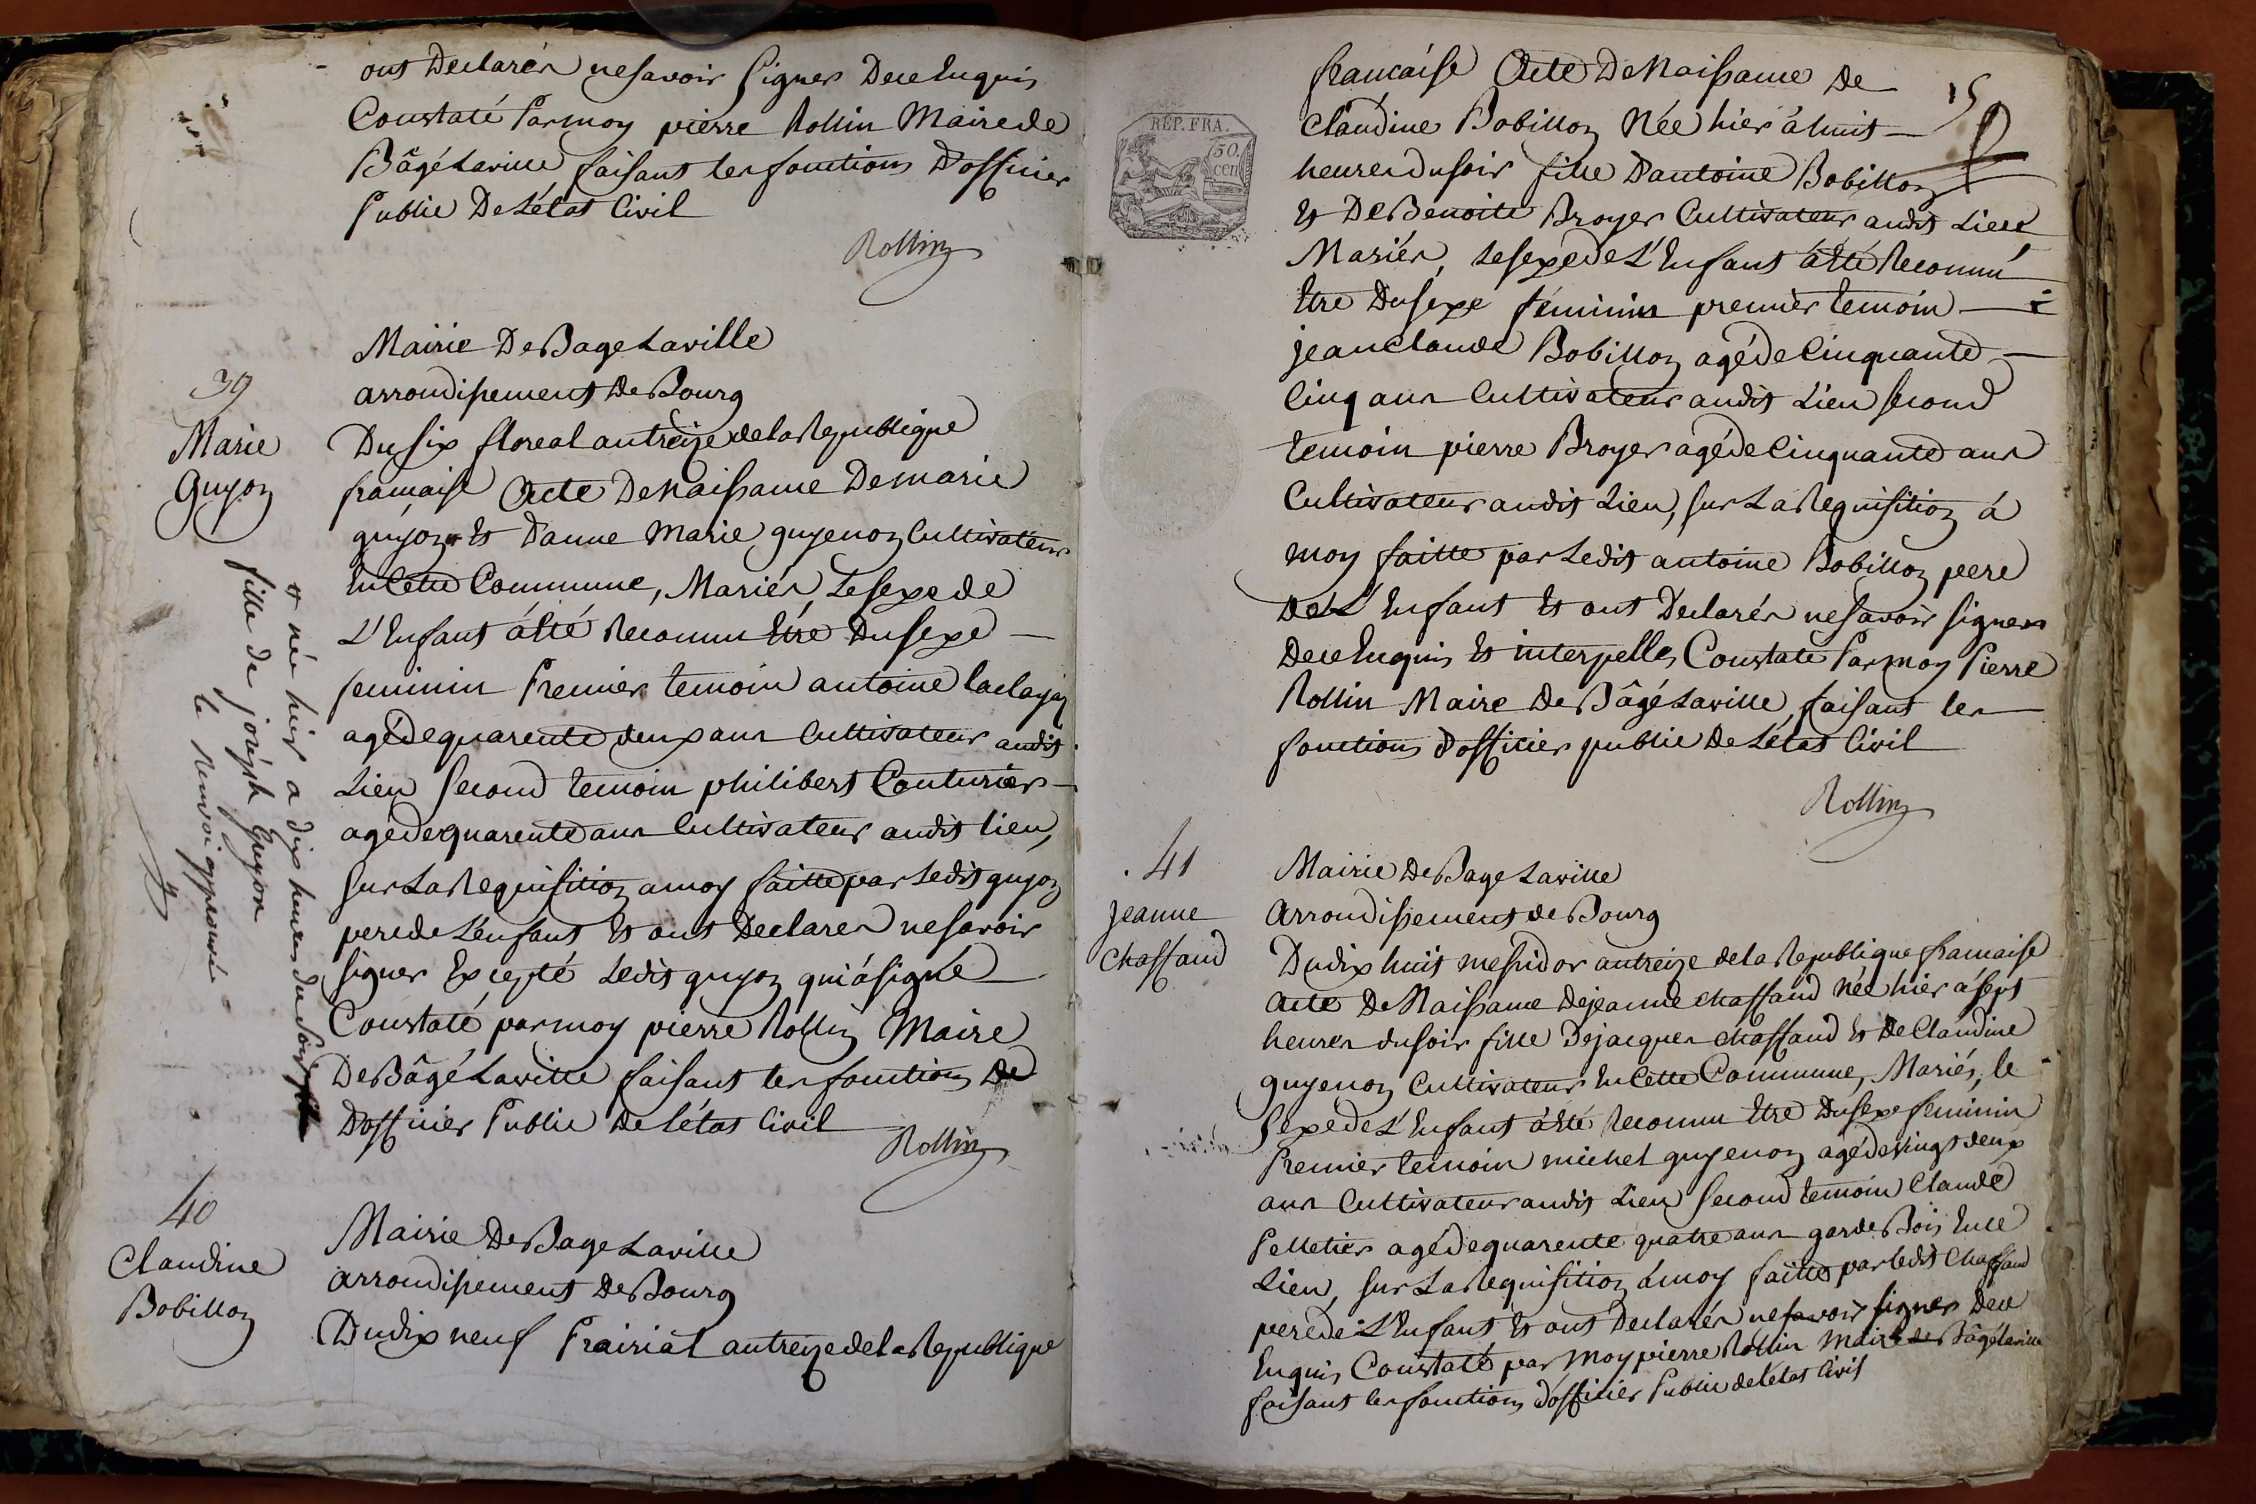 ont Declarés ne savoir signer De ce Enquis
Constaté Par moy pierre Rollin Maire de
Bâgé Laville faisant les fonctions D'officier
Public De L'état Civil
Rollin
39
Marie
Guyon
Mairie De Bage Laville
arrondissement De Bourg
Du six floreal an treize de la Republique
française Acte De Naissance De marie
guyon # Et D'anne Marie guyenon Cultivateurs
En Cette Commune, Mariés, Le sexe de
L'Enfant á Eté Reconnu Etre Du sexe
feminin Premier temoin antoine
agé de quarente deux ans Cultivateur audit
Lieu Second temoin philibert Couturier
agé de quarente ans Cultivateur audit lieu,
Sur La Requisition a moy faitte par Ledit guyon
pere de L'enfant Et ont Declarés ne savoir
signer Excepté Ledit guyon qui á signé
Constaté par moy pierre Rollin Maire
De Bâgé Laville faisant les fonctions De
D'officier Public De L'état Civil
Rollin
# née hier a dix heures du soir
fille de joseph Guyon
le Renvoi approuvé
40
Claudine
Bobillon
Mairie De Bage Laville
arrondissement De Bourg
Du dix neuf Prairial an treize de La Republique
15
REP. FRA.
50
cen
française Acte De Naissance De
Claudine Bobillon Née hier á huit
heures du soir fille D'antoine Bobillon
Et De Benoite Broyer Cultivateurs audit Lieu
Mariés, Le sexe de L'Enfant á Eté Reconnu
Etre Du sexe féminin premier temoin
jean claude Bobillon agé de Cinquante
Cinq ans Cultivateur audit Lieu second
temoin pierre Broyer agé de Cinquante ans
Cultivateur audit Lieu, sur La Requisition á
moy faitte par Ledit antoine Bobillon pere
De L'Enfant Et ont Declarés ne savoir signer
De ce Enquis Et interpellés, Constaté Par moy Pierre
Rollin Maire De Bâgé Laville faisant les
fonctions D'officier public De L'état Civil
Rollin
41
Jeanne
Chaffaud
Mairie De Bage Laville
Arrondissement de Bourg
Du dix huit messidor an treize de la Republique française
acte De Naissance De jeanne chaffaud Née hier á sept
heures du soir fille De jacques chaffaud Et De Claudine
guyenon Cultivateurs En Cette Commune, Mariés, le
sexe de L'Enfant á Eté Reconnu Etre Du sexe feminin
Premier temoin michel guyenon agé de vingt deux
ans Cultivateur audit Lieu Second temoin Claude
Pelletier agé de quarente quatre ans garde Bois En ce
Lieu, sur La Requisition á moy faitte par ledit Chaffaud
pere de L'Enfant Et ont Declarés ne savoir signer De ce
Enquis Constaté par moy pierre Rollin maire de Bâgé laville
faisant les fonctions D'officier Public de L'état Civil